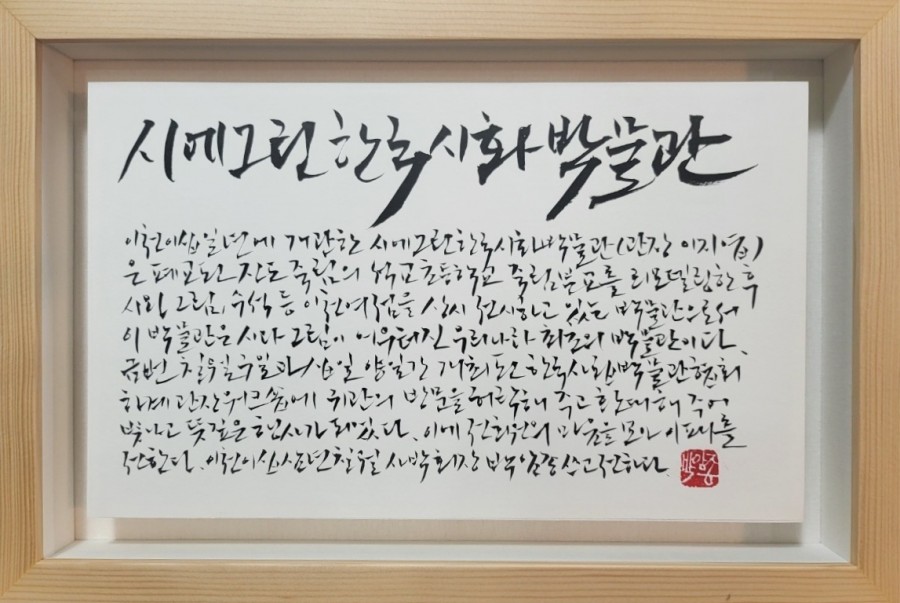 시에그린한국시화박물관
이천이십일년에 개관한 시에그린한국시화박물관(관장 이지엽)
은 폐교된 진도 죽림의 석교초등학교 죽림분교를 리모델링한 후
시와 그림, 수석 등 이천여점을 상시 전시하고 있는 박물관으로서
이 박물관은 시다 그림이 어우러진 우리나라 최초의 박물관이다.
금번 칠월구일과 십일 양일간 개최된 한국사립박물관협회
하계 관장워크숍에 귀관의 방문을 허락해 주고 환대해 주어
빛나고 뜻깊은 행사가 되었다. 이에 전회원의 마음을 모아 이 패를
전한다. 이천이십삼년칠월 사박회장 쓰고전하다.